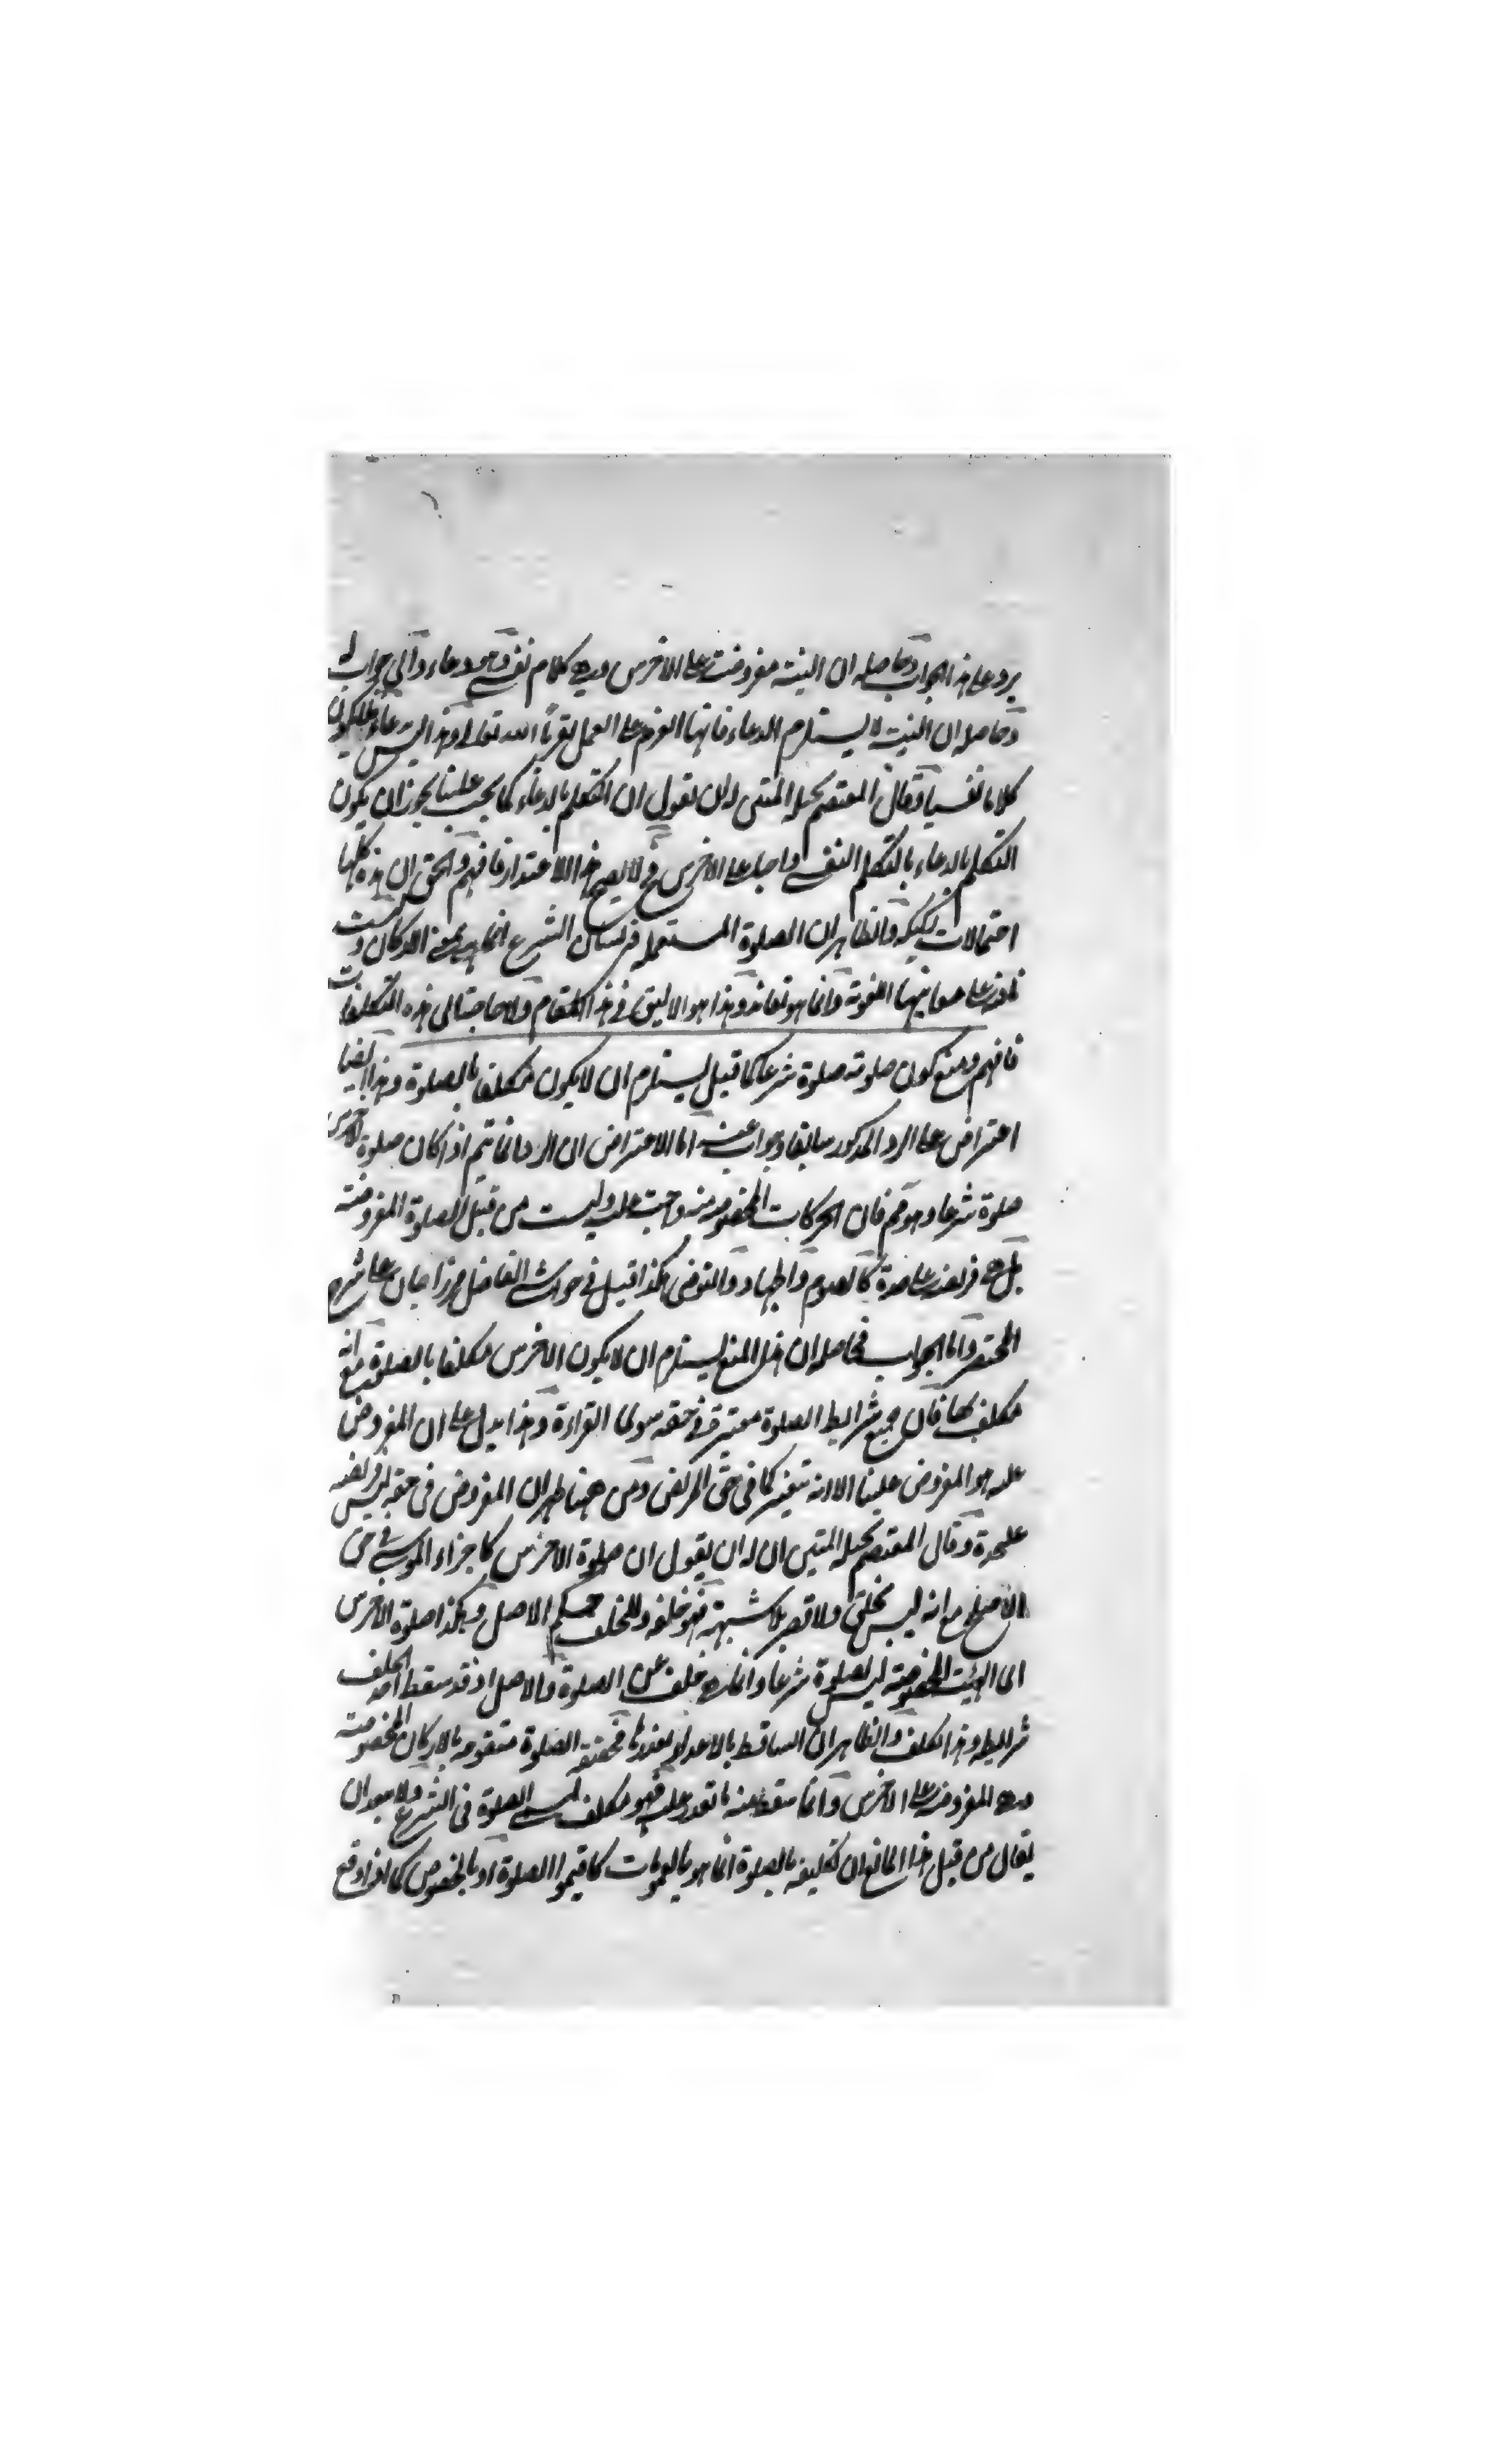 يرد على هذا الجواب وحاصله ان النية مفروضة على الاخرس وهي كلام نفسي وهو دعاء والى جواب له
وحاصله ان النية لا يستلزم الدعاء فانها العزم على العمل تقربا الى الله تعالى وهذا ليس بدعاء فلا يكون
كلاما نفسيا وقال المعتصم بحبله المتين وان نقول ان التكلم بالدعاء كما يجب علينا يجوز ان يكون
التكلم بالدعاء بالتكلم النفسي واجبا على الاخرس فح لا يصح هذا الاعتذار فافهم والحق ان هذه كلها
احتمالات ركيكة والظاهر ان الصلوة المستعملة في لسان الشرع انما هي الاركان وليست
على معانيها اللغوية وانما هو وهذا هو الاليق في هذا المقام ولا حاجة الى هذه التكلفات
فافهم ومنع كون صلوته صلوة شرعا كما قيل يستلزم ان لا يكون مكلفا بالصلوة وهذا ايضا
اعتراض على الرد المذكور سابقا وجواب عنه اما الاعتراض ان الرد انما يتم اذا كان صلوة الاخرس
صلوة شرعا وهو مم فان الحركات المخصوصة منه وجبت عليه وليست من قبل الصلوة المفروضة
بل هي فريضة على حدة كالصوم والجهاد والتوضي هكذا قيل في حواشي الفاضل مرزا جان على شرح
المختصر واما الجواب فحاصله ان هذا المنع يستلزم ان لا يكون الاخرس مكلفا بالصلوة مع انه
مكلف بها فان جميع شرايط الصلوة معتبرة في حقه سوى القراءة وهذا يدل على ان المفروض
عليه هو المفروض علينا الا انه تغير كما في حق المريض ومن ههنا ظهر ان المفروض في حقه ليس فريضة
عليحدة وقال المعتصم بحبله المتين ان له ان يقول ان صلوة الاخرس كاجراء الموسى في حق
الاصلع مع انه ليس بحلق ولا تقصير بلا شبهة فهو خلفه وللخلف حكم الاصل وهكذا صلوة الاخرس
اى الهيئة المخصوصة ليس صلوة شرعا وانما هي خلف عن الصلوة والاصل اذ قد سقط احد
شرايطه وهذا والظاهر ان الساقط بالاعذار فحقيقة الصلوة متقومة بالاركان المخصوصة
وهي المفروضة على الاخرس وانما سقط عنه ما تعذر عليه فهو مكلف الصلوة في الشرع ولا يبعد ان
يقال من قبل هذا المانع ان تكليفه بالصلوة انما هو بالعمومات كاقيموا الصلوة او بالخصوص كما اذا وقع